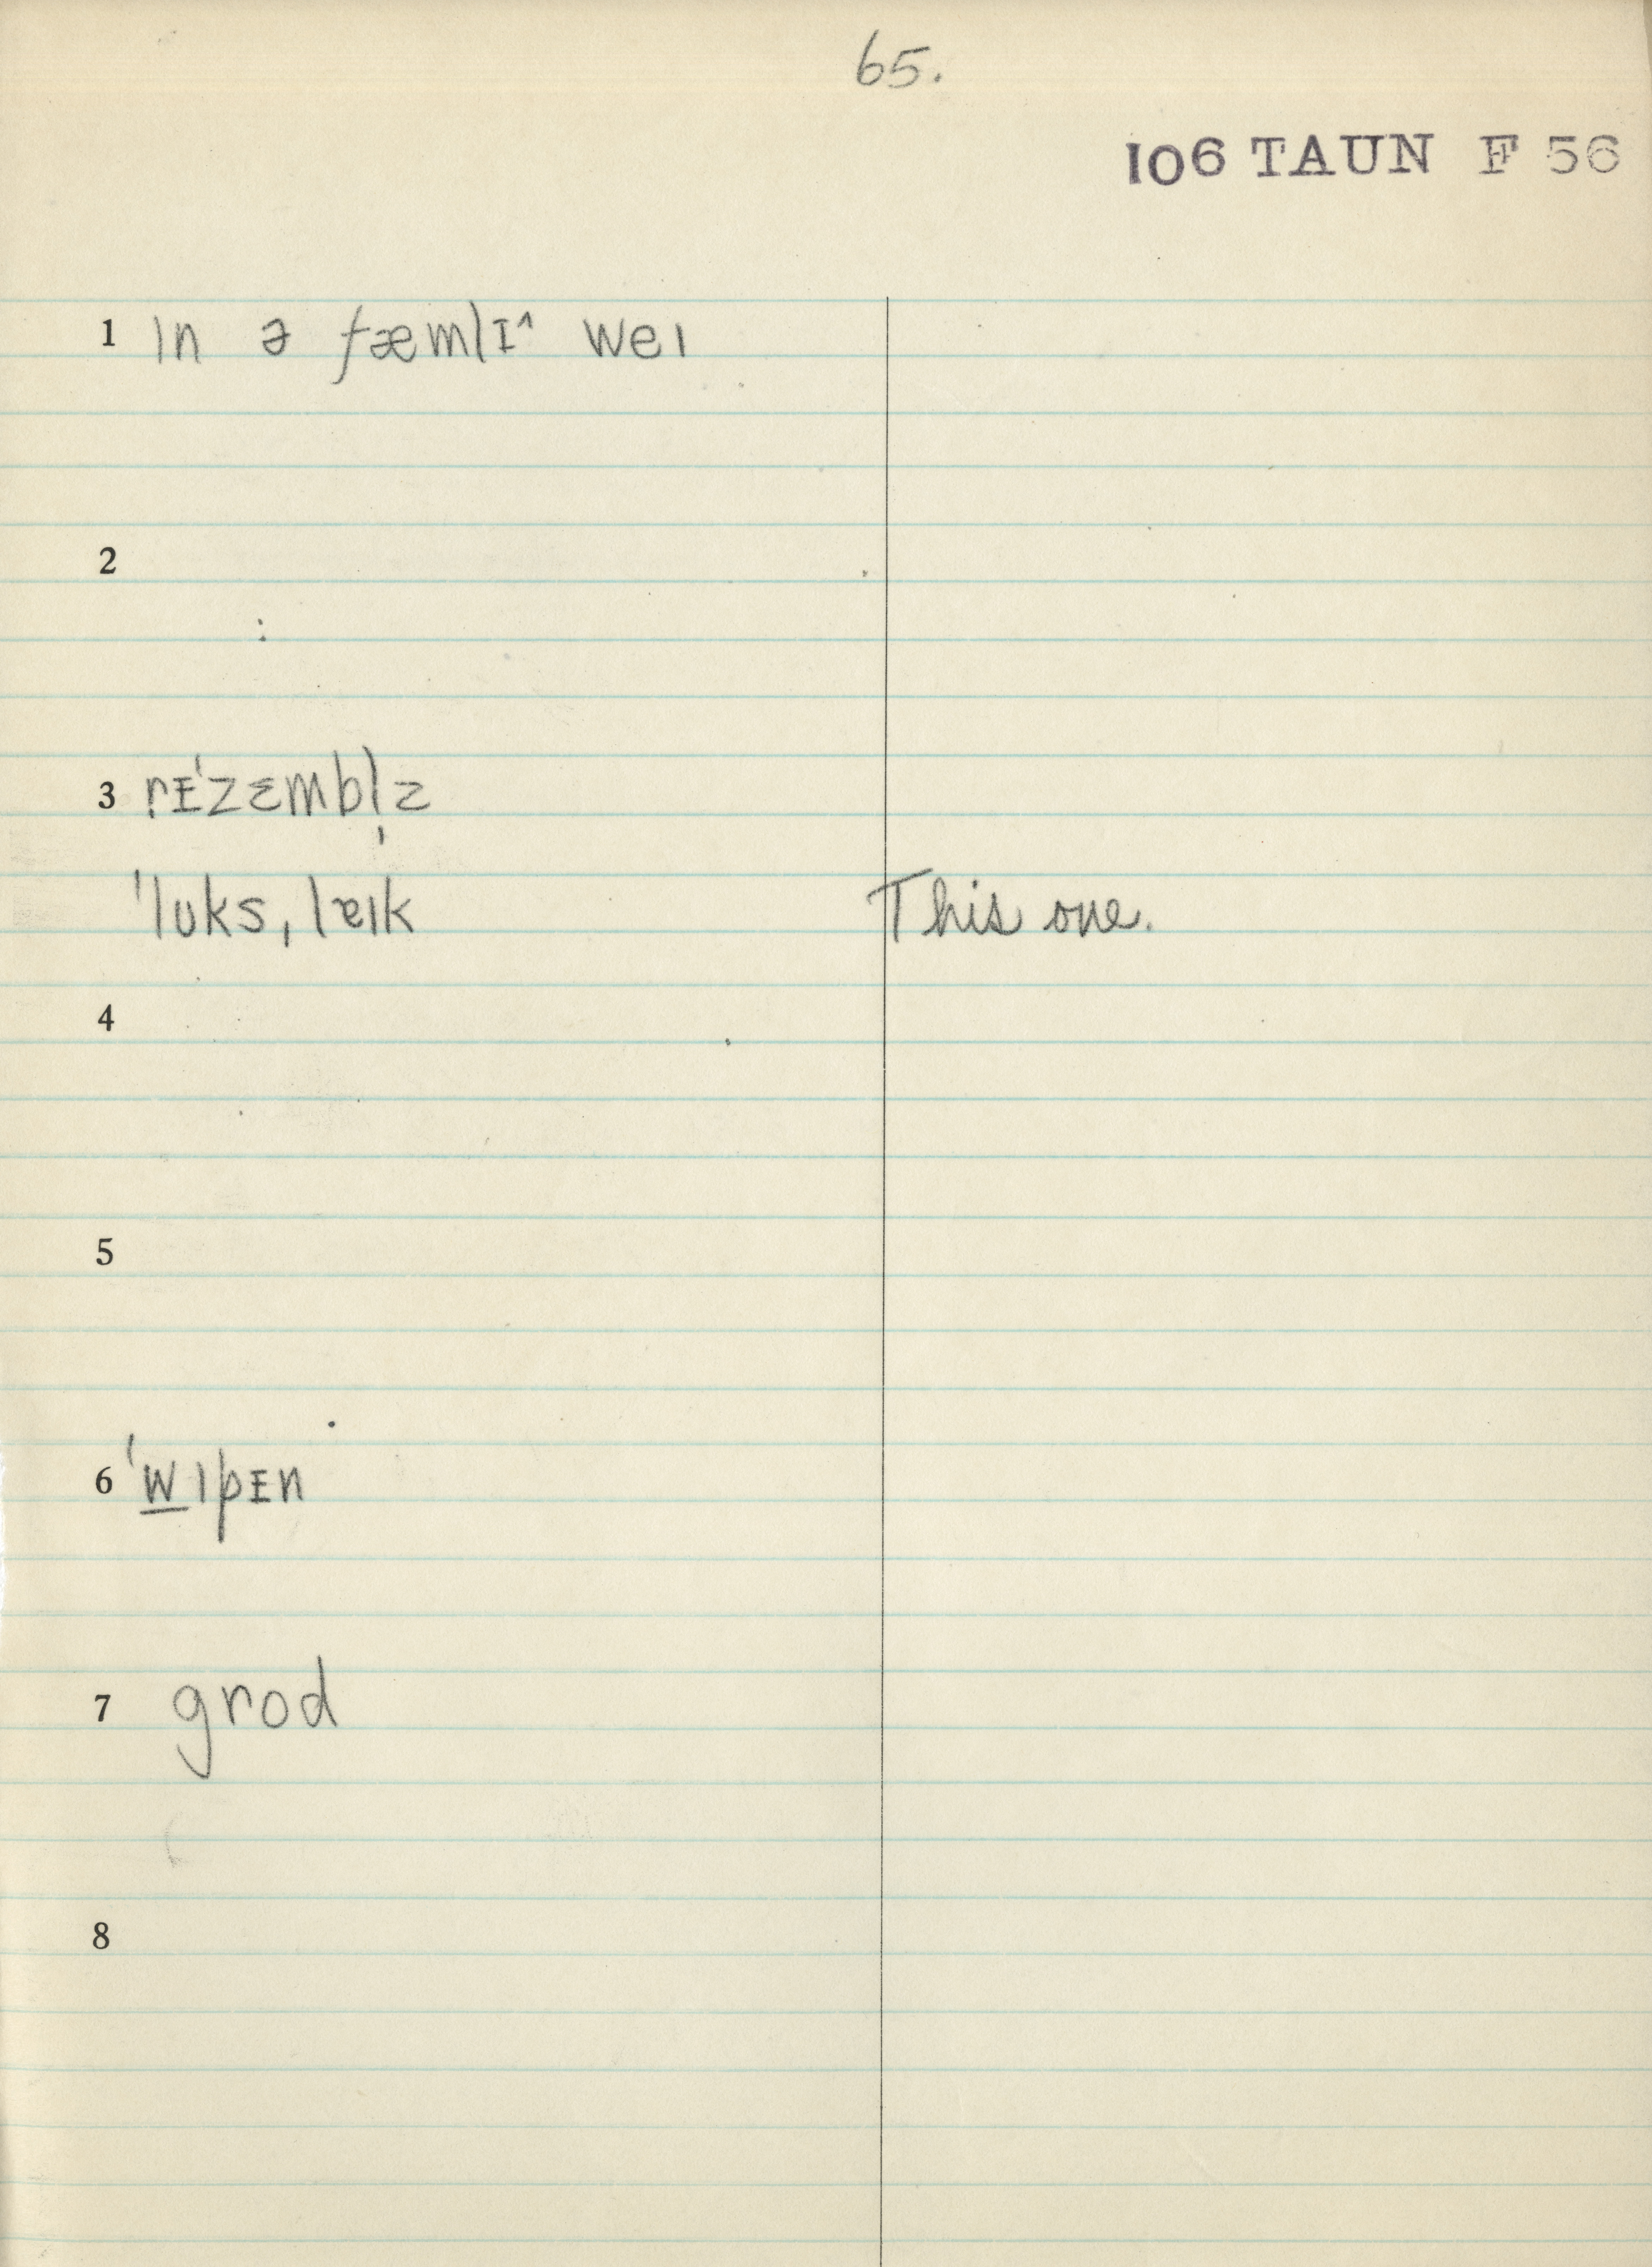 65.
106 TAUN F 56
1 ın ə fæmlɪ^ weı
2
3 rᴇ'zɛmbl̩z
'lʊks, lɐık This one.
4
5
6 'w̲ıpᴇn
7 grod
8